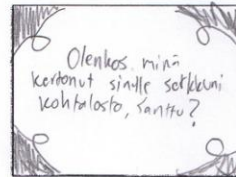 Olenkos minä
kertonut sinulle serkkuni
kohtalosta, Santtu?